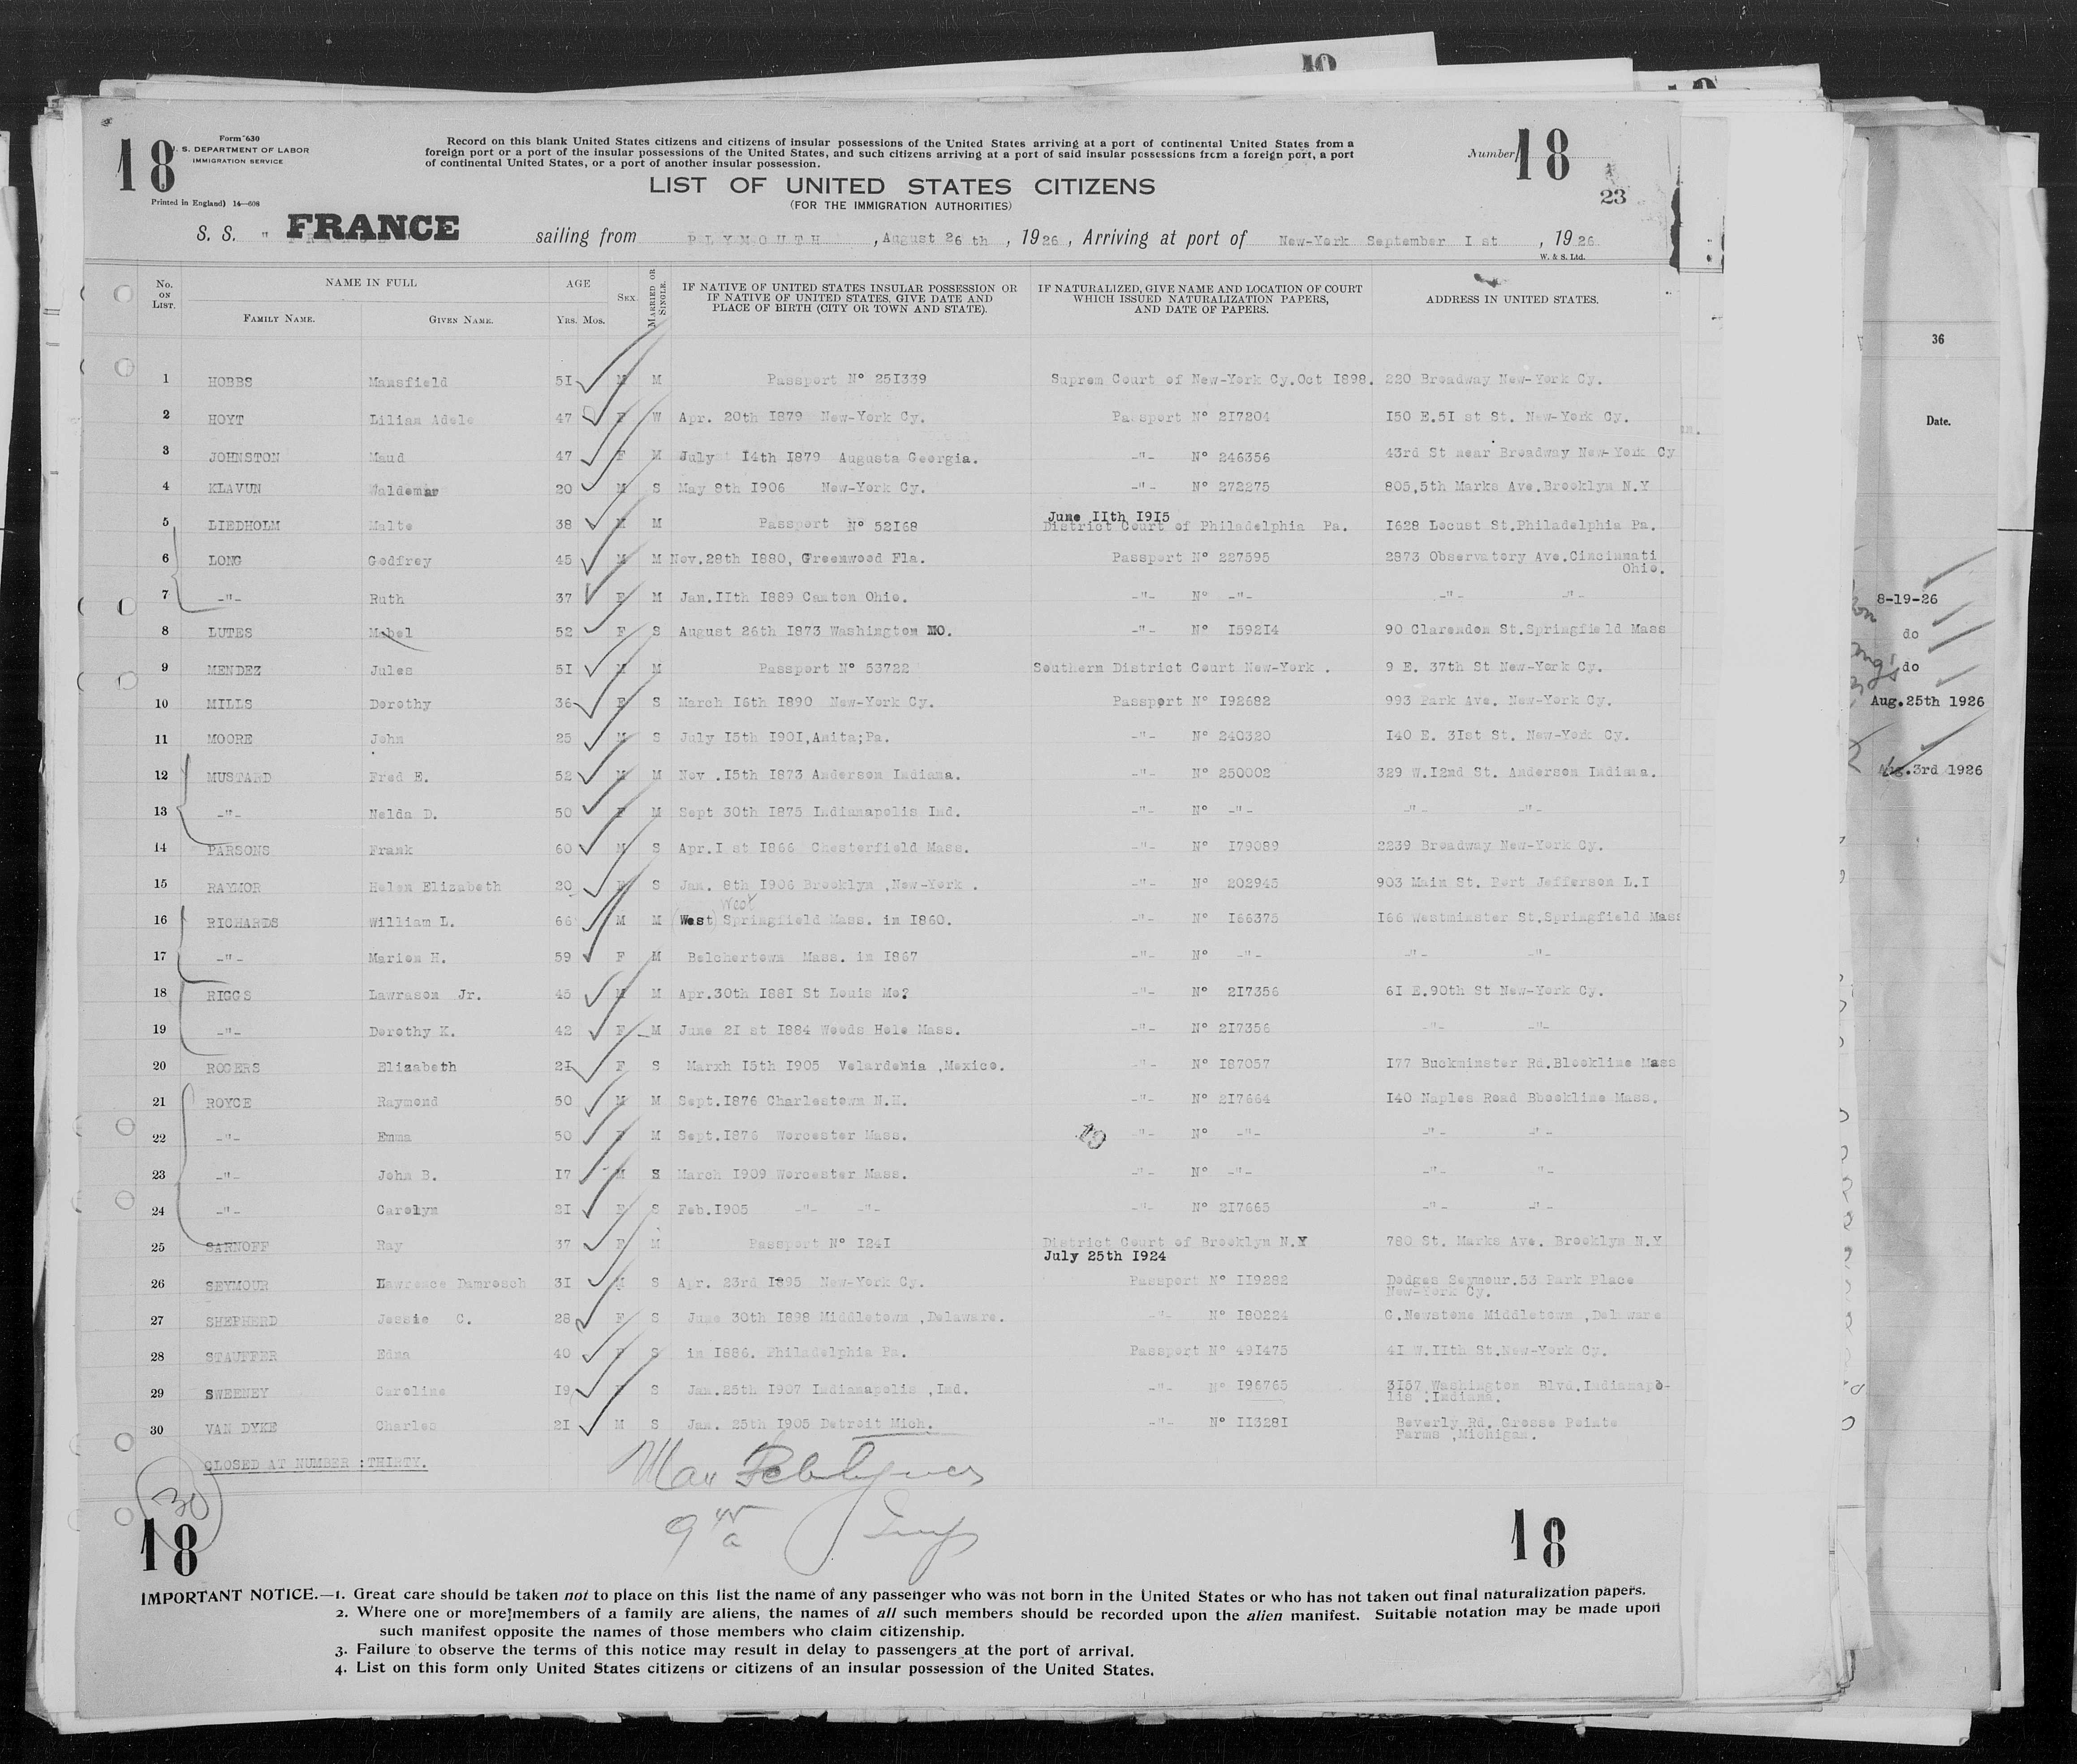 18
Form 630
U. S. DEPARTMENT OF LABOR
IMMIGRATION SERVICE
Printed in England) 14—608
Record on this blank United States citizens and citizens of insular possessions of the United States arriving at a port of continental United States from a
foreign port or a port of the insular possessions of the United States, and such citizens arriving at a port of said insular possessions from a foreign port, a port
of continental United States, or a port of another insular possession.
Number 18
23
LIST OF UNITED STATES CITIZENS
(FOR THE IMMIGRATION AUTHORITIES)
S. S. " FRANCE sailing from PLYMOUTH , August 26 th , 1926 , Arriving at port of New-York September I st , 1926
W. & S. Ltd.
No. ON LIST. NAME IN FULL AGE SEX. MARRIED OR SINGLE. IF NATIVE OF UNITED STATES INSULAR POSSESSION OR IF NATIVE OF UNITED STATES, GIVE DATE AND PLACE OF BIRTH (CITY OR TOWN AND STATE). IF NATURALIZED, GIVE NAME AND LOCATION OF COURT WHICH ISSUED NATURALIZATION PAPERS, AND DATE OF PAPERS. ADDRESS IN UNITED STATES.
FAMILY NAME. GIVEN NAME. Yrs. Mos.
1 HOBBS Mansfield 5I M M Passport N° 25I339 Suprem Court of New-York Cy.Oct I898. 220 Broadway New-York Cy.
2 HOYT Lilian Adele 47 F W Apr. 20th I879 New-York Cy. Passport N° 2I7204 I50 E.5I st St. New-York Cy.
3 JOHNSTON Maud 47 F M July I4th I879 Augusta Georgia. -"- N° 246356 43rd St near Broadway New-York Cy
4 KLAVUN Waldemar 20 M S May 8th I906 New-York Cy. -"- N° 272275 805,5th Marks Ave.Brooklyn N.Y
5 LIEDHOLM Malte 38 M M Passport N° 52I68 June IIth I9I5 District Court of Philadelphia Pa. I628 Locust St.Philadelphia Pa.
6 LONG Godfrey 45 M M Nov.28th I880, Greenwood Fla. Passport N° 227595 2873 Observatory Ave.Cincinnati
Ohio.
7 -"- Ruth 37 F M Jan.IIth I889 Canton Ohio. -"- N° -"- -"- -"-
8 LUTES Mabel 52 F S August 26th I873 Washington MO. -"- N° I592I4 90 Clarendon St.Springfield Mass
9 MENDEZ Jules 5I M M Passport N° 53722 Southern District Court New-York . 9 E. 37th St New-York Cy.
10 MILLS Dorothy 36 F S March I6th I890 New-York Cy. Passport N° I92682 993 Park Ave. New-York Cy.
11 MOORE John 25 M S July I5th I90I,Anita;Pa. -"- N° 240320 I40 E. 3Ist St. New-York Cy.
12 MUSTARD Fred E. 52 M M Nov .I5th I873 Anderson Indiana. -"- N° 250002 329 W.I2nd St. Anderson Indiana.
13 -"- Nelda D. 50 F M Sept 30th I875 Indianapolis Ind. -"- N° -"- -"- -"-
14 PARSONS Frank 60 M S Apr.I st I866 Chesterfield Mass. -"- N° I79089 2239 Broadway New-York Cy.
15 RAYMOR Helen Elizabeth 20 F S Jan. 8th I906 Brooklyn ,New-York . -"- N° 202945 903 Main St. Port Jefferson L.I
West
16 RICHARDS William L. 66 M M (West) Springfield Mass. in I860. -"- N° I66375 I66 Westminster St.Springfield Mass
17 -"- Marion H. 59 F M Belchertown Mass. in I867 -"- N° -"- -"- -"-
18 RIGGS Lawrason Jr. 45 M M Apr.30th I88I St Louis Mo? -"- N° 2I7356 6I E.90th St New-York Cy.
19 -"- Dorothy K. 42 F M June 2I st I884 Woods Hole Mass. -"- N° 2I7356 -"- -"-
20 ROGERS Elizabeth 2I F S Marxh I5th I905 Velardenia ,Mexico. -"- N° I87057 I77 Buckminster Rd.Blookline Mass
21 ROYCE Raymond 50 M M Sept.I876 Charlestown N.H. -"- N° 2I7664 I40 Naples Road Bbookline Mass.
22 -"- Emma 50 F M Sept.I876 Worcester Mass. 19 -"- N° -"- -"- -"-
23 -"- John B. I7 M S March I909 Worcester Mass. -"- N° -"- -"- "-
24 -"- Carolyn 2I F S Feb.I905 -"- -"- -"- N° 2I7665 -"- -"-
25 SARNOFF Ray 37 F M Passport N° I24I District Court of Brooklyn N.Y July 25th I924 780 St. Marks Ave. Brooklyn N.Y
26 SEYMOUR Lawrence Damrosch 3I M S Apr. 23rd I895 New-York Cy. Passport N° II9282 Dodges Seymour.53 Park Place
New-York Cy.
27 SHEPHERD Jessie C. 28 F S June 30th I898 Middletown ,Delaware. -"- N° I80224 G.Newstone Middletown ,Delaware
28 STAUFFER Edna 40 F S in I886. Philadelphia Pa. Passport N° 49I475 4I W.IIth St.New-York Cy.
29 SWEENEY Caroline I9 F S Jan.25th I907 Indianapolis ,Ind. -"- N° I96765 3I57 Washington Blvd.Indianapo-
lis .Indiana.
30 VAN DYKE Charles 2I M S Jan. 25th I905 Detroit Mich. -"- N° II328I Beverly Rd. Grosse Pointe
Farms ,Michigan.
CLOSED AT NUMBER :THIRTY.
30
18
18
IMPORTANT NOTICE.—1. Great care should be taken not to place on this list the name of any passenger who was not born in the United States or who has not taken out final naturalization papers.
2. Where one or more members of a family are aliens, the names of all such members should be recorded upon the alien manifest. Suitable notation may be made upon
such manifest opposite the names of those members who claim citizenship.
3. Failure to observe the terms of this notice may result in delay to passengers at the port of arrival.
4. List on this form only United States citizens or citizens of an insular possession of the United States.
36
Date.
8-19-26
do
do
Aug.25th 1926
Aug.3rd 1926